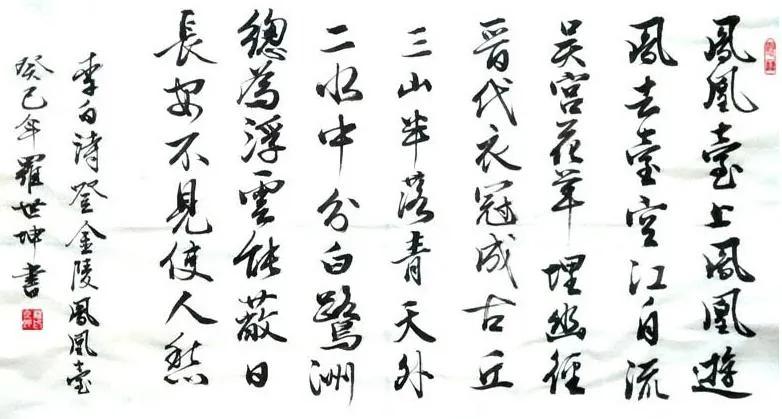 鳳凰臺上鳳凰遊
鳳去臺空江自流
吴宫花草埋幽徑
晋代衣冠成古丘
三山半落青天外
二水中分白鷺洲
總為浮雲能蔽日
長安不見使人愁
李白詩登金陵鳳凰臺
癸巳年羅世坤書